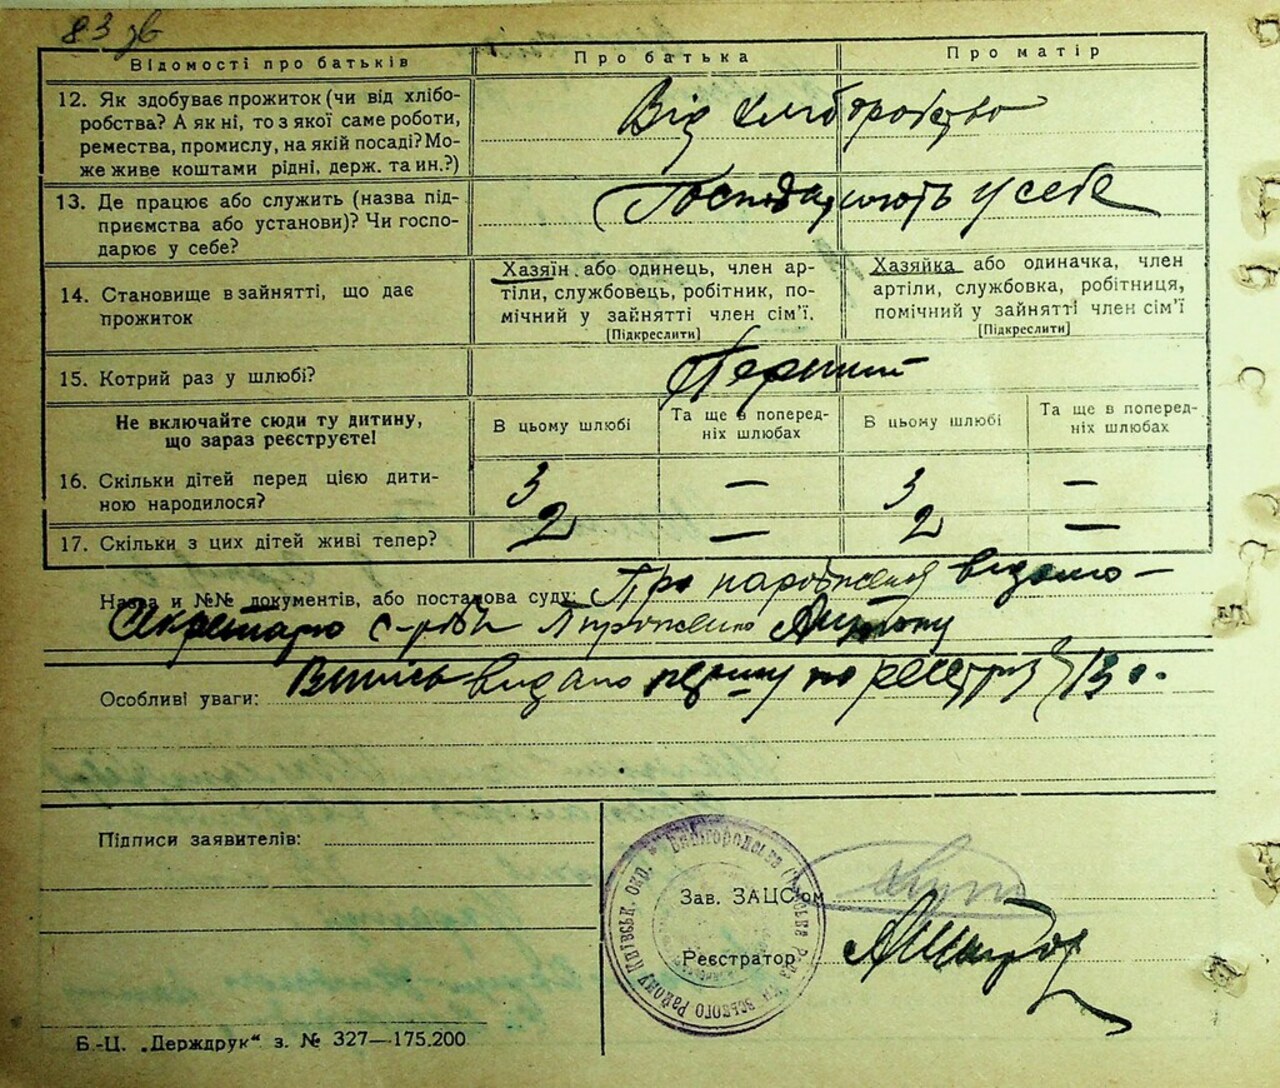 83 зв
Відомості про батьків
Про батька
Про матір
12. Як здобуває прожиток (чи від хлібо-
робства? А як ні, то з якої саме роботи,
ремества, промислу, на якій посаді? Мо-
же живе коштами рідні, держ. та ин.?)
Від хліборобство
13. Де працює або служить (назва під-
приємства або установи)? Чи госпо-
дарює у себе?
Господарюють у себе
14. Становище в зайнятті, що дає
прожиток
Хазяїн або одинець, член ар-
тіли, службовець, робітник, по-
мічний у зайнятті член сім'ї.
[Підкреслити]
Хазяйка або одиначка, член
артіли, службовка, робітниця,
помічний у зайнятті член сім'ї
[Підкреслити]
15. Котрий раз у шлюбі?
Перший
Не включайте сюди ту дитину,
що зараз реєструєте!
В цьому шлюбі
Та ще в поперед-
ніх шлюбах
В цьому шлюбі
Та ще в поперед-
ніх шлюбах
16. Скільки дітей перед цією дити-
ною народилося?
3 — 3 —
17. Скільки з цих дітей живі тепер?
2 — 2 —
Назва и №№ документів, або постанова суду: Про народження відомо —
Секретарю с-ради Антону
Особливі уваги: Випись видано першу по реєстру 713 о.
Підписи заявителів:
Зав. ЗАЦС'ом
Реєстратор
Київськ. окр. Білгородська Рада Району
Б.-Ц. „Держдрук“ з. № 327—175.200